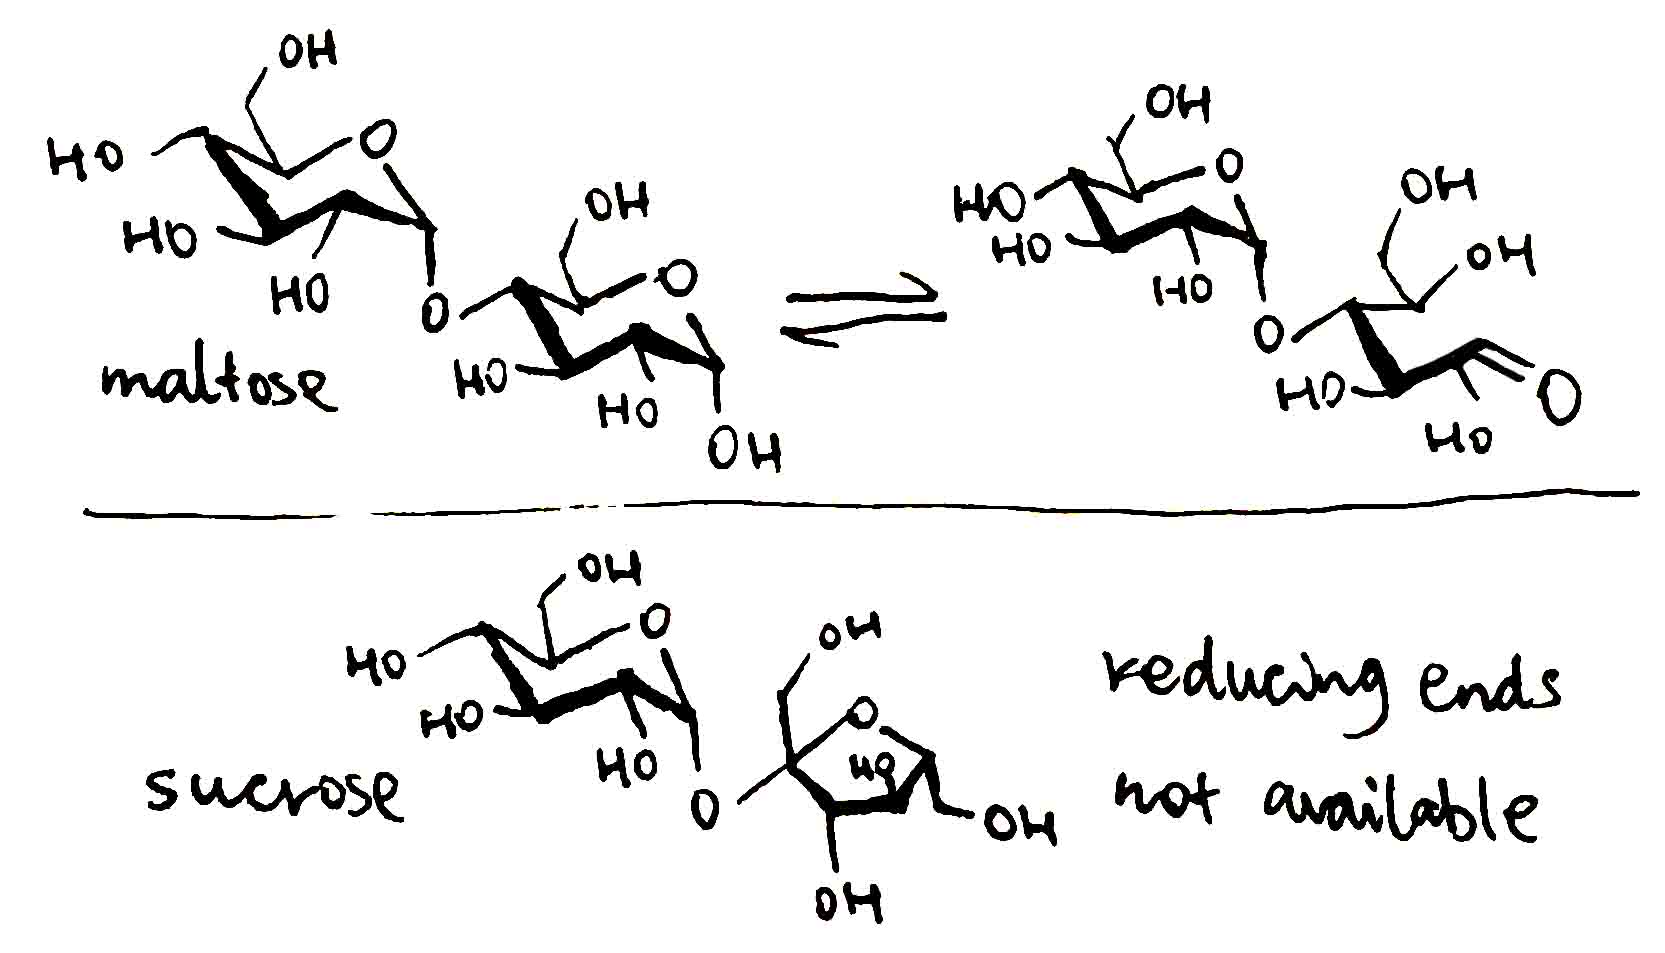 OH
HO
O
HO
HO
O
OH
O
HO
HO
OH
maltose
OH
HO
O
HO
HO
O
OH
OH
HO
HO
O
OH
HO
O
HO
HO
O
OH
O
HO
OH
OH
sucrose
reducing ends
not available